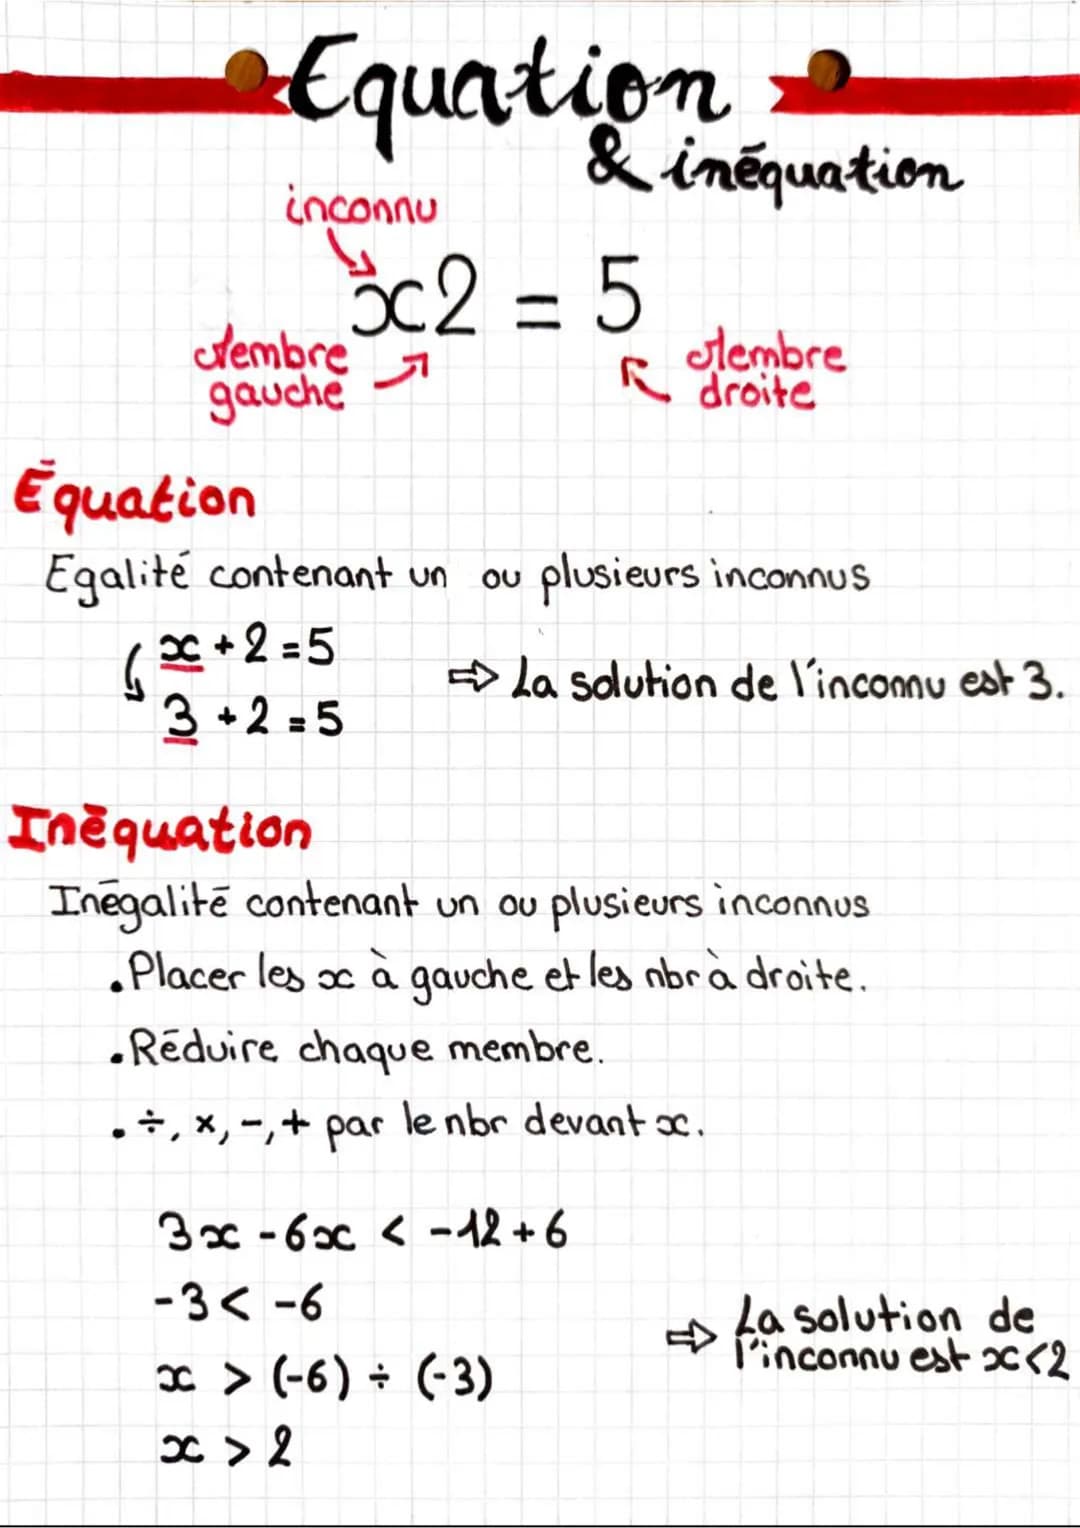 Equation
& inéquation
inconnu
x2 = 5
Membre
gauche
Membre
droite
Équation
Egalité contenant un ou plusieurs inconnus
x + 2 = 5
3 + 2 = 5
⇒ La solution de l'inconnu est 3.
Inéquation
Inégalité contenant un ou plusieurs inconnus
• Placer les x à gauche et les nbr à droite.
• Réduire chaque membre.
• ÷, ×, -, + par le nbr devant x.
3x - 6x < -12 + 6
-3 < -6
x > (-6) ÷ (-3)
x > 2
⇒ La solution de
l'inconnu est x<2